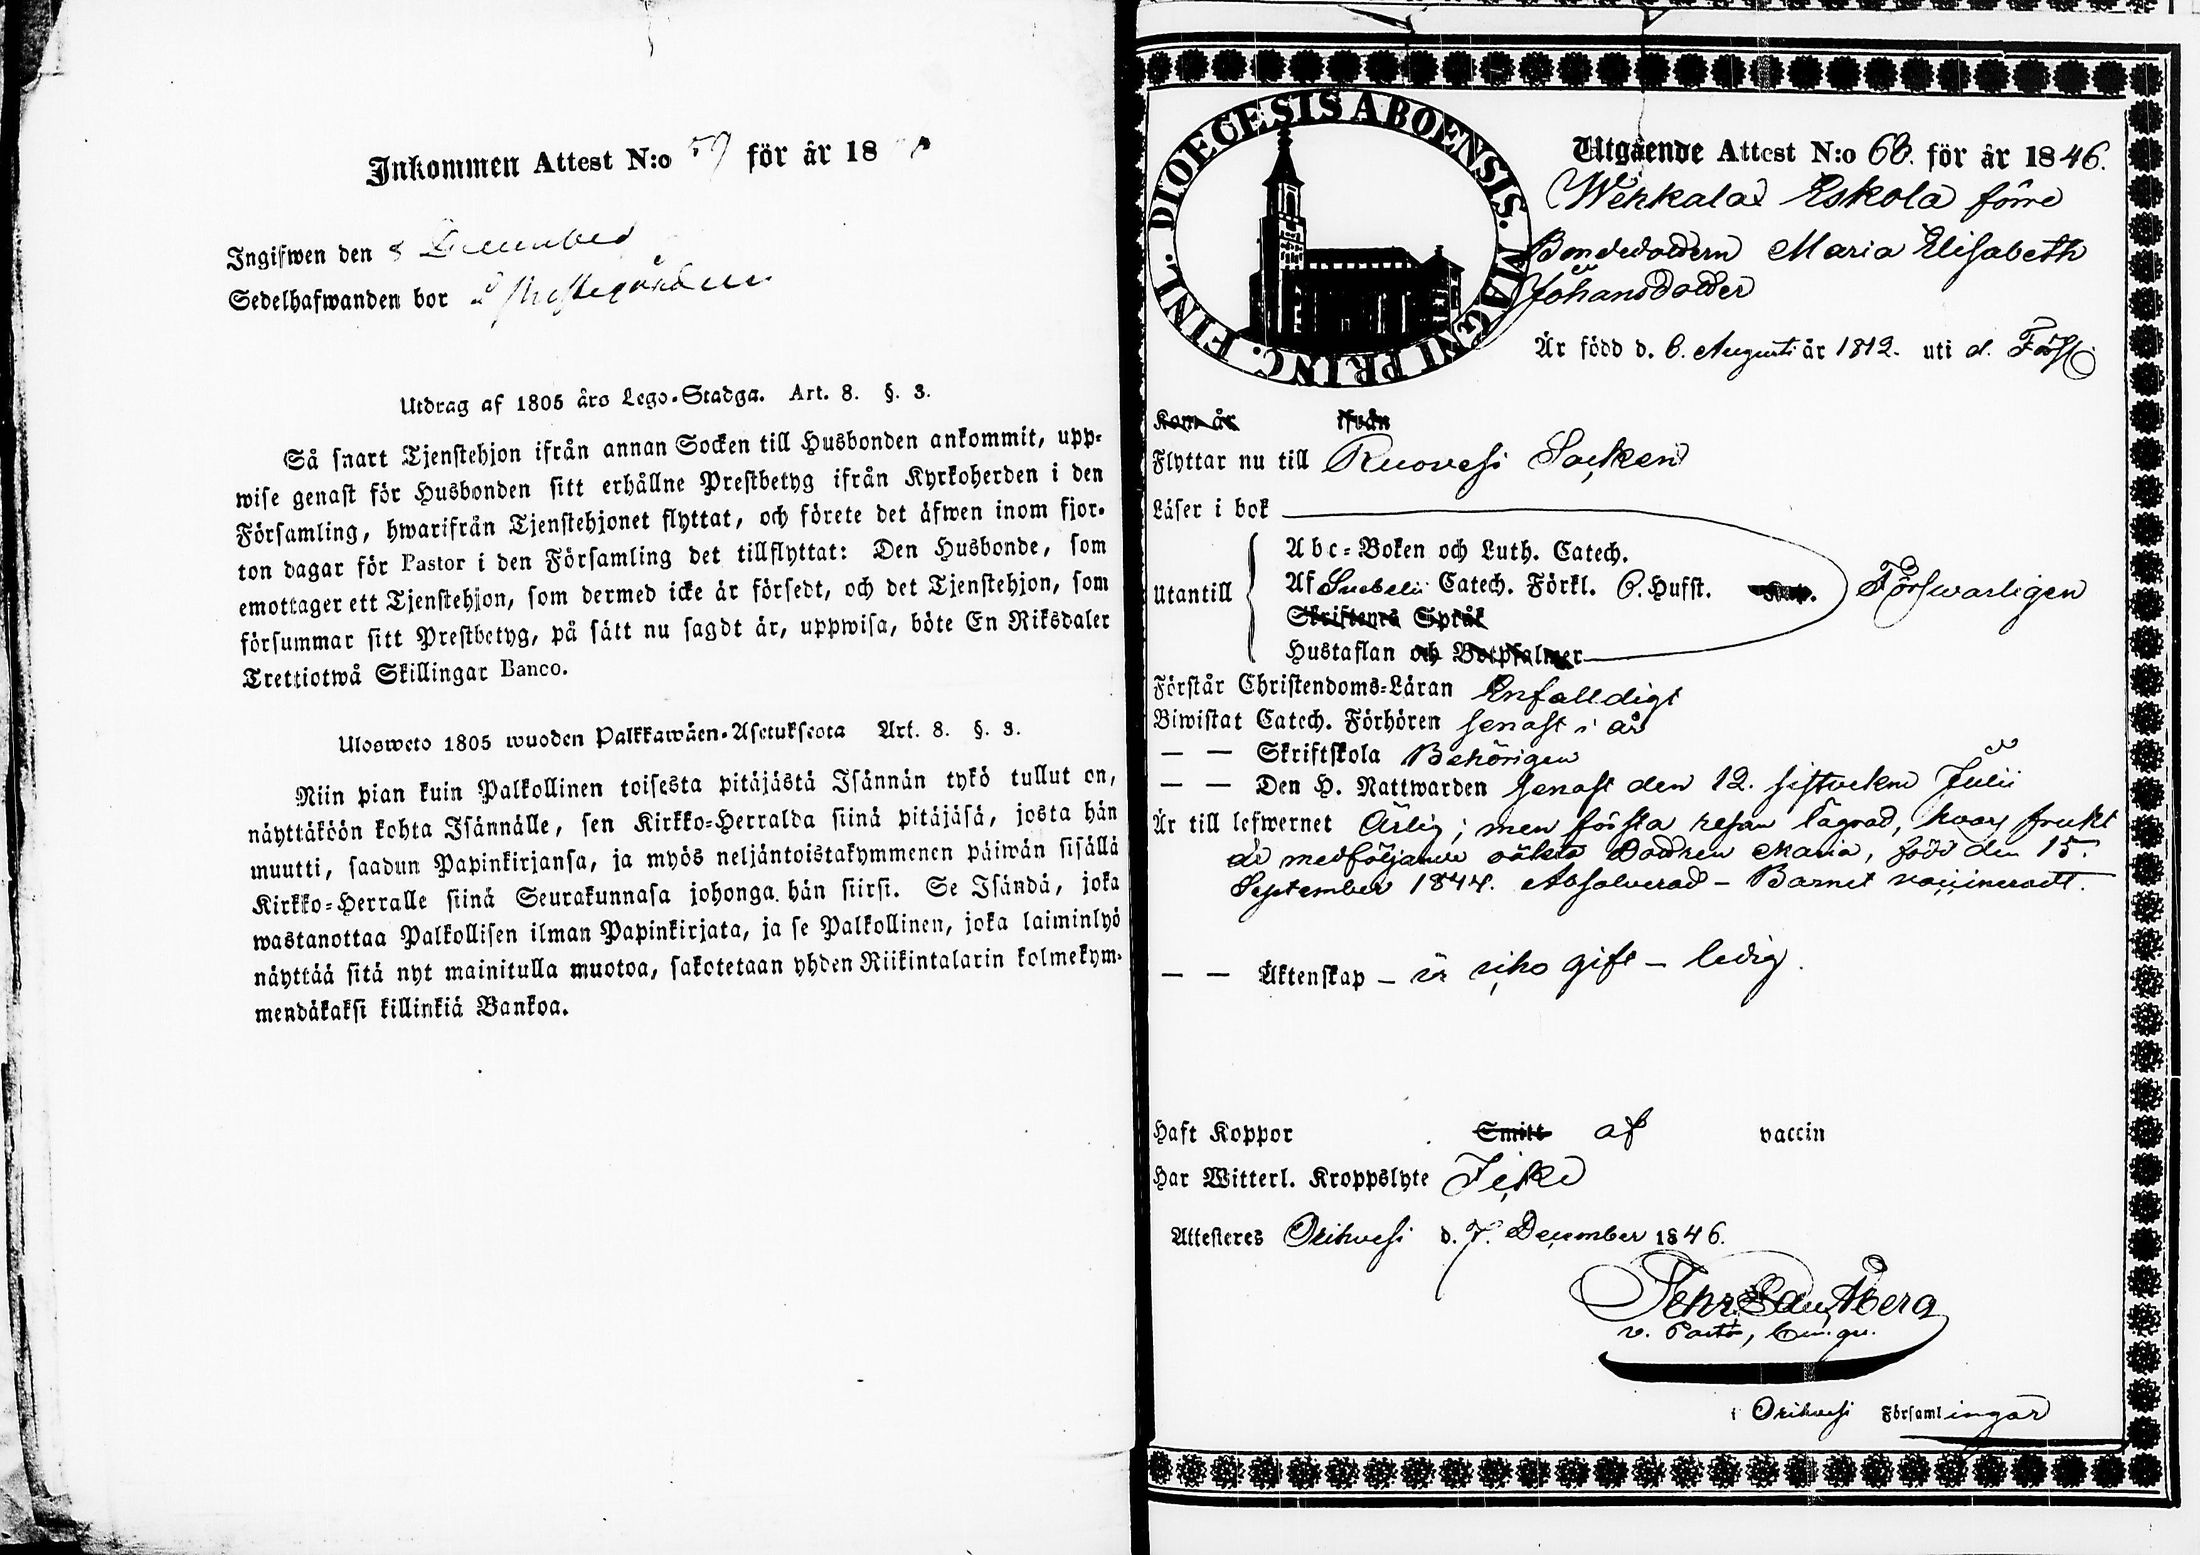 Inkommen Attest N:o 59 för år 18
Ingifwen den 8 December
Sedelhafwanden bor
Utdrag af 1805 års Lego-Stadga. Art. 8. §. 3.
Så snart Tjenstehjon ifrån annan Socken till Husbonden ankommit, upp-
wise genast för Husbonden sitt erhållne Prestbetyg ifrån Kyrkoherden i den
Församling, hwarifrån Tjenstehjonet flyttat, och förete det äfwen inom fjor-
ton dagar för Pastor i den Församling det tillflyttat: Den Husbonde, som
emottager ett Tjenstehjon, som dermed icke är försedt, och det Tjenstehjon, som
försummar sitt Prestbetyg, på sätt nu sagdt är, uppwisa, böte En Riksdaler
Trettiotwå Skillingar Banco.
Ulosweto 1805 wuoden Palkkawäen-Asetuksesta Art. 8. §. 3.
Niin pian kuin Palkollinen toisesta pitäjästä Isännän tykö tullut on,
näyttäköön kohta Isännälle, sen Kirkko-Herralda siinä pitäjäsä, josta hän
muutti, saadun Papinkirjansa, ja myös neljäntoistakymmenen päiwän sisällä
Kirkko-Herralle siinä Seurakunnasa johonga hän siirsi. Se Isändä, joka
wastanottaa Palkollisen ilman Papinkirjata, ja se Palkollinen, joka laiminlyö
näyttää sitä nyt mainitulla muotoa, sakotetaan yhden Riikintalarin kolmekym-
mendäkaksi killinkiä Bankoa.
DIOECESIS ABOENSIS. MAGNI PRINC. FINL.
Utgående Attest N:o 68. för år 1846.
Wehkalax Eskola förre
Bondedottern Maria Elisabeth
Johansdotter
Är född d. 6. Augusti år 1812. uti d. Förs.
Kom år ifrån
Flyttar nu till Ruovesi Socken
Läser i bok
Utantill
Abc-Boken och Luth. Catech.
Af Svebelii Catech. Förkl. O. Hufst. Försvarligen
Skriftenes Språk
Hustaflan och Botpsalmer
Förstår Christendoms-Läran Enfalldigt
Biwistat Catech. Förhören senast i år
— — Skriftskola Behörigen
— — Den H. Nattwarden senast den 12. sistvekne Julii
Är till lefwernet Ärlig; men första resan lägrad, hvars frukt
är medföljande oäkta Dottren Maria, född den 15.
September 1844. Absolverad – Barnet vaccineradt.
— — Äktenskap – är icke gift – ledig.
Haft Koppor Smitt af vaccin
Har Witterl. Kroppslyte Icke
Attesteres Orihvesi d. 7. December 1846.
v. Pastor,
i Orihvesi Församlingar